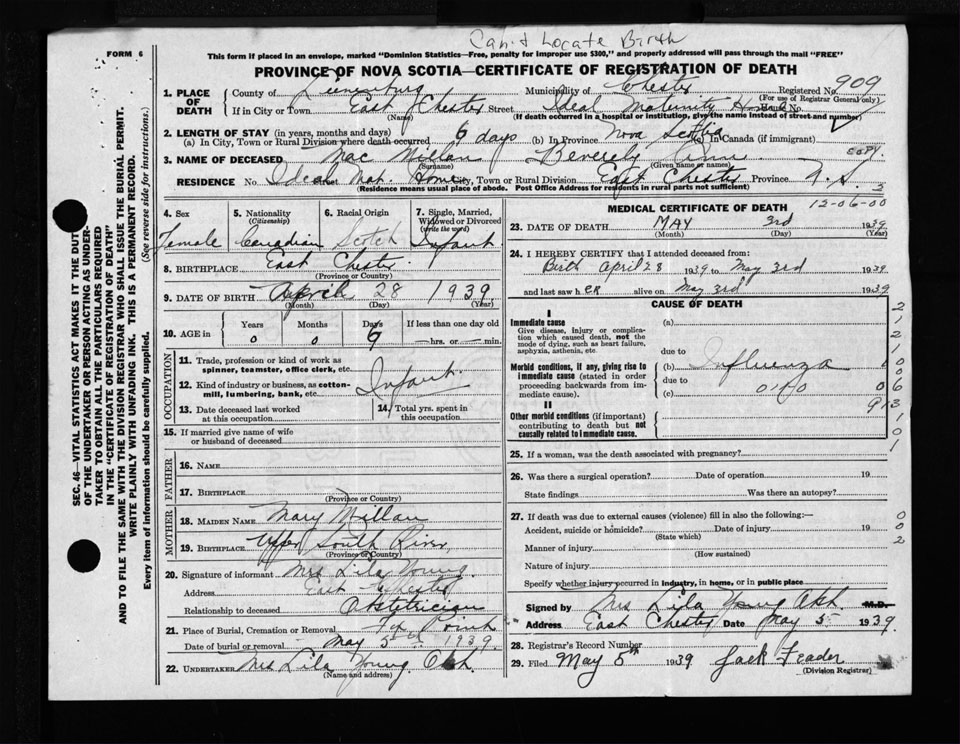 Can't Locate Birth
FORM 6
This form if placed in an envelope, marked "Dominion Statistics—Free, penalty for improper use $300," and properly addressed will pass through the mail "FREE"
PROVINCE OF NOVA SCOTIA—CERTIFICATE OF REGISTRATION OF DEATH
1. PLACE OF DEATH County of Lunenburg Municipality of Chester Registered No. 909
(For use of Registrar General only)
If in City or Town East Chester Street Ideal Maternity Home House No.
(Name) (If death occurred in a hospital or institution, give the name instead of street and number)
2. LENGTH OF STAY (in years, months and days)
(a) In City, Town or Rural Division where death occurred 6 days (b) In Province Nova Scotia (c) In Canada (if immigrant)
COPY
3. NAME OF DECEASED Mac Millan Beverly Ann
(Surname) (Given name or names)
RESIDENCE No. Ideal Mat. Home Street City, Town or Rural Division East Chester Province N.S. 3
(Residence means usual place of abode. Post Office Address for residents in rural parts not sufficient)
12-06-00
4. Sex 5. Nationality (Citizenship) 6. Racial Origin 7. Single, Married, Widowed or Divorced (write the word)
Female Canadian Scotch Infant
8. BIRTHPLACE East Chester
(Province or Country)
9. DATE OF BIRTH April 28 1939
(Month) (Day) (Year)
10. AGE in Years Months Days If less than one day old
0 0 6 hrs. or min.
OCCUPATION
11. Trade, profession or kind of work as spinner, teamster, office clerk, etc.
12. Kind of industry or business, as cotton-mill, lumbering, bank, etc. Infant.
13. Date deceased last worked at this occupation
14. Total yrs. spent in this occupation
15. If married give name of wife or husband of deceased
FATHER
16. NAME
17. BIRTHPLACE
(Province or Country)
MOTHER
18. MAIDEN NAME Mary Millan
19. BIRTHPLACE Upper South River
(Province or Country)
20. Signature of informant Mrs Lila Young
Address East Chester
Relationship to deceased Obstetrician
21. Place of Burial, Cremation or Removal Fox Point
Date of burial or removal May 5th 1939
22. UNDERTAKER Mrs Lila Young Obst.
(Name and address)
MEDICAL CERTIFICATE OF DEATH
23. DATE OF DEATH MAY 3rd 1939
(Month) (Day) (Year)
24. I HEREBY CERTIFY that I attended deceased from:
Birth April 28 1939 to May 3rd 1939
and last saw her alive on May 3rd 1939
CAUSE OF DEATH
I
Immediate cause (a)
Give disease, injury or complication which caused death, not the mode of dying, such as heart failure, asphyxia, asthenia, etc.
due to
Morbid conditions, if any, giving rise to immediate cause (stated in order proceeding backwards from immediate cause). (b) Influenza
due to
(c)
II
Other morbid conditions (if important) contributing to death but not causally related to immediate cause.
25. If a woman, was the death associated with pregnancy?
26. Was there a surgical operation? Date of operation 19
State findings Was there an autopsy?
27. If death was due to external causes (violence) fill in also the following:—
Accident, suicide or homicide? Date of injury 19
(State which)
Manner of injury
(How sustained)
Nature of injury
Specify whether injury occurred in industry, in home, or in public place
Signed by Mrs Lila Young Obst. M.D.
Address East Chester Date May 5 1939
28. Registrar's Record Number
29. Filed May 5th 1939 Jack Feader
(Division Registrar)
SEC. 46—VITAL STATISTICS ACT MAKES IT THE DUTY
OF THE UNDERTAKER OR PERSON ACTING AS UNDER-
TAKER TO OBTAIN ALL THE PARTICULARS REQUIRED
IN THE "CERTIFICATE OF REGISTRATION OF DEATH"
AND TO FILE THE SAME WITH THE DIVISION REGISTRAR WHO SHALL ISSUE THE BURIAL PERMIT.
WRITE PLAINLY WITH UNFADING INK. THIS IS A PERMANENT RECORD.
Every item of information should be carefully supplied. (See reverse side for instructions.)